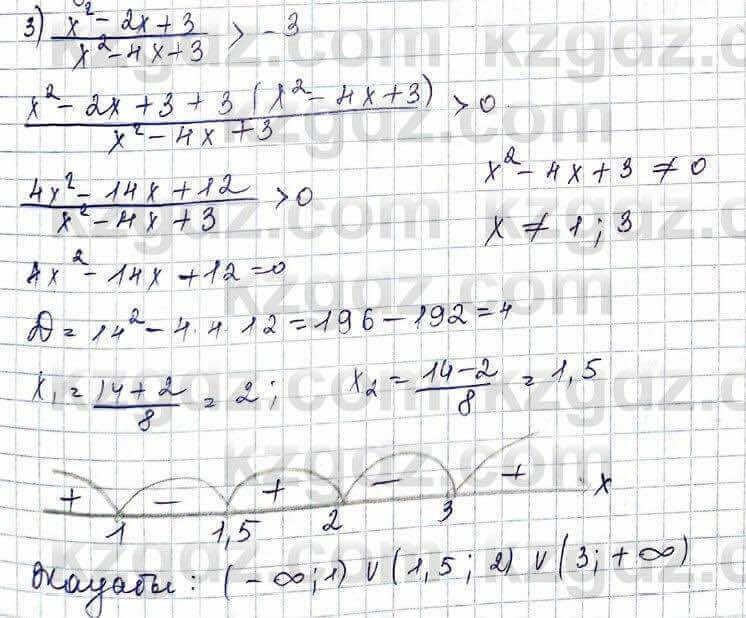 3) (x² - 2x + 3)/(x² - 4x + 3) > -3
(x² - 2x + 3 + 3(x² - 4x + 3))/(x² - 4x + 3) > 0
(4x² - 14x + 12)/(x² - 4x + 3) > 0
x² - 4x + 3 ≠ 0
x ≠ 1; 3
4x² - 14x + 12 = 0
D = 14² - 4·4·12 = 196 - 192 = 4
x₁ = (14 + 2)/8 = 2; x₂ = (14 - 2)/8 = 1,5
+ - + - + x
1 1,5 2 3
Жауабы: (-∞; 1) ∪ (1,5; 2) ∪ (3; +∞)
kzgdz.com